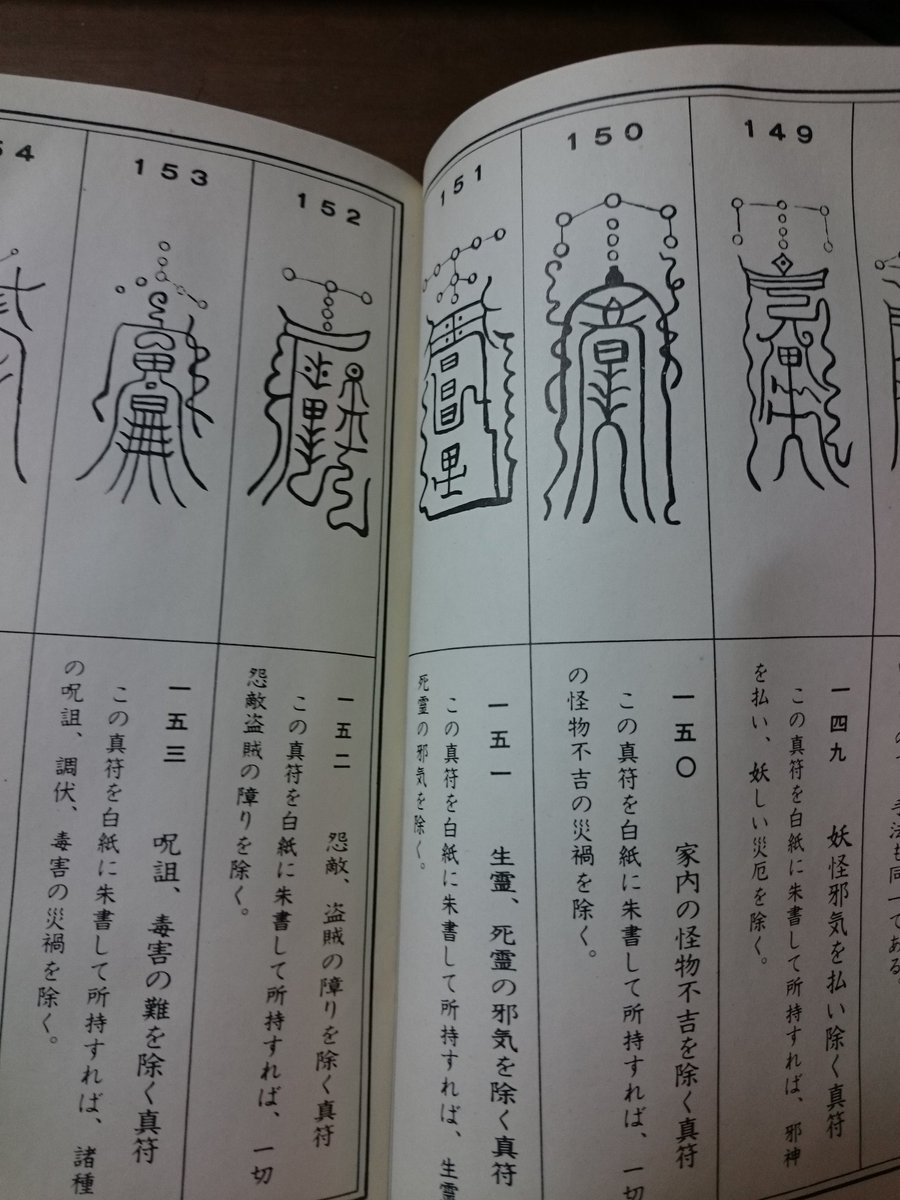 149
150
151
152
153
54
の
手法も同一である。
一四九　妖怪邪気を払い除く真符
この真符を白紙に朱書して所持すれば、邪神
を払い、妖しい災厄を除く。
一五〇　家内の怪物不吉を除く真符
この真符を白紙に朱書して所持すれば、一切
の怪物不吉の災禍を除く。
一五一　生霊、死霊の邪気を除く真符
この真符を白紙に朱書して所持すれば、生霊
死霊の邪気を除く。
一五二　怨敵、盗賊の障りを除く真符
この真符を白紙に朱書して所持すれば、一切
怨敵盗賊の障りを除く。
一五三　呪詛、毒害の難を除く真符
この真符を白紙に朱書して所持すれば、諸種
の呪詛、調伏、毒害の災禍を除く。